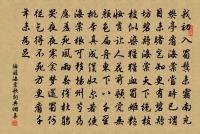 我初入蜀鬢未霜南充
樊亭看海棠當時已謂
目未睹豈知更有碧雞
坊碧雞海棠天下絕枝
枝似染猩猩血蜀姬艷
妝肯讓人花前頓覺無
顏色扁舟東下八千里
桃李真成僕奴爾若使
海棠根可移揚州芍藥
應羞死風雨春殘杜鵑
哭夜夜寒衾夢還蜀何
從乞得不死方更看千
年未為足
陸游海棠歌